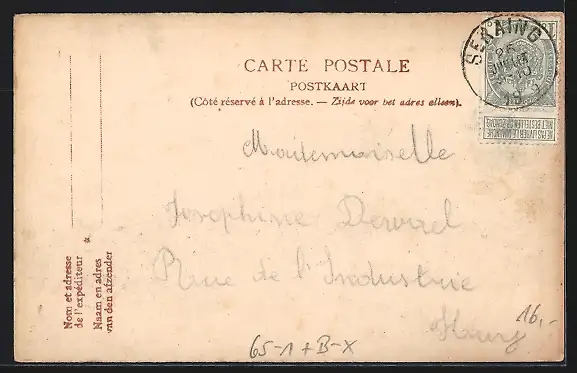 SERAING
CARTE POSTALE
POSTKAART
(Côté réservé à l'adresse. — Zijde voor het adres alleen).
NE PAS LIVRER LE DIMANCHE
NIET BESTELLEN OP ZONDAG
Mademoiselle
Josephine
Rue de l'Industrie
Nom et adresse
de l'expéditeur
Naam en adres
van den afzender
16.-
65-1 + B-X